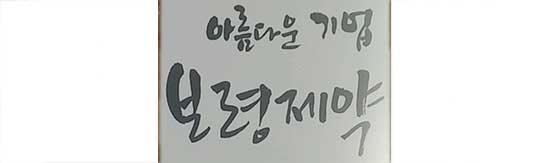 아름다운 기업
보령제약